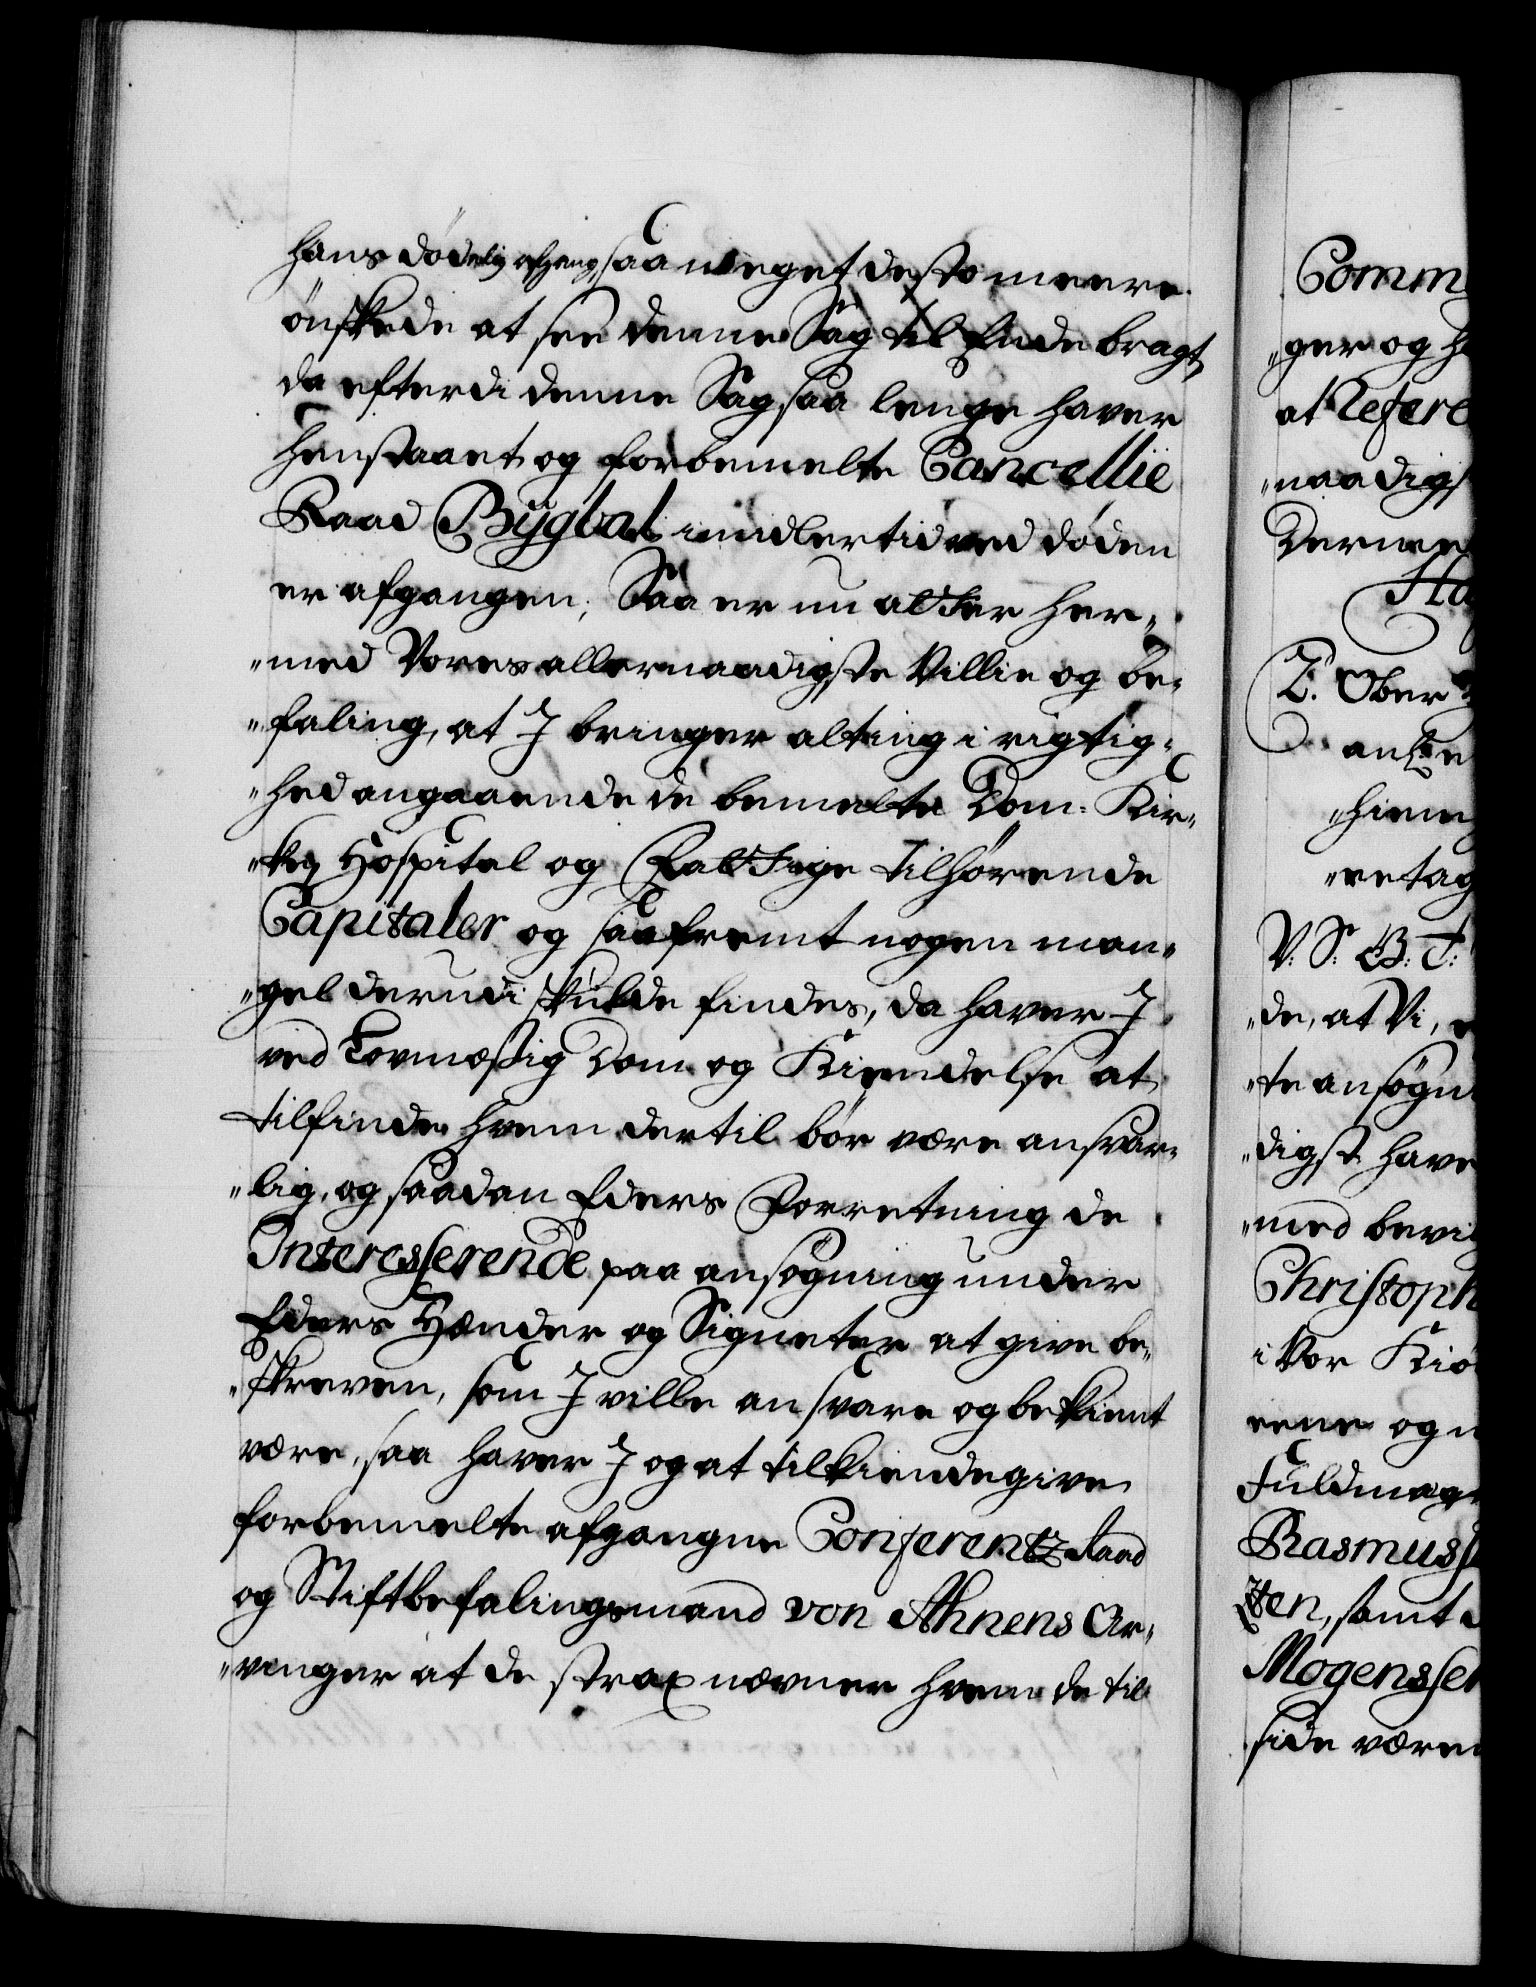 hans dødelig afgang, saa meget desto meere
ønskede at see denne Sag til Ende bragt,
da efterdi denne Sag saa lenge haver
henstaaet og forbemelte Cancellie
Raad Bygbal imidlertid ved døden
er afgangen; Saa er nu atter her„
„med Vores allernaadigste Villie og be„
„faling, at I bringer alting i rigtig„
„hed angaaende de bemelte Dom: Kir„
„ke, Hospital og Fattige tilhørende
Capitaler og saafremt nogen man„
„gel derudi skulde findes, da haver I
ved Lovmæssig Dom og Kiendelse at
tilfinde hvem dertil bør være ansvar„
„lig, og saadan Eders Forretning de
Interesserende paa ansøgning under
Eders Hænder og Signeter at give be„
„skreven, som I ville ansvare og bekient
være, saa haver I og at tilkiendegive
forbemelte afgangne Conferentz Raad
og Stiftbefalingsmand von Ahnens Ar„
„vinger at de strax nævner hvem de til
Comm
„ger og h
at Refere
„naadigs
Dermed
Ha
T. Ober
„hiem
„retag
V: S: G: T:
„de, at Vi,
„te ansøgn
„digst have
„med bevi
Christoph
i Vor Kiø
eene og
Fuldmag
Rasmuss
ten, samt
Mogensse
side være